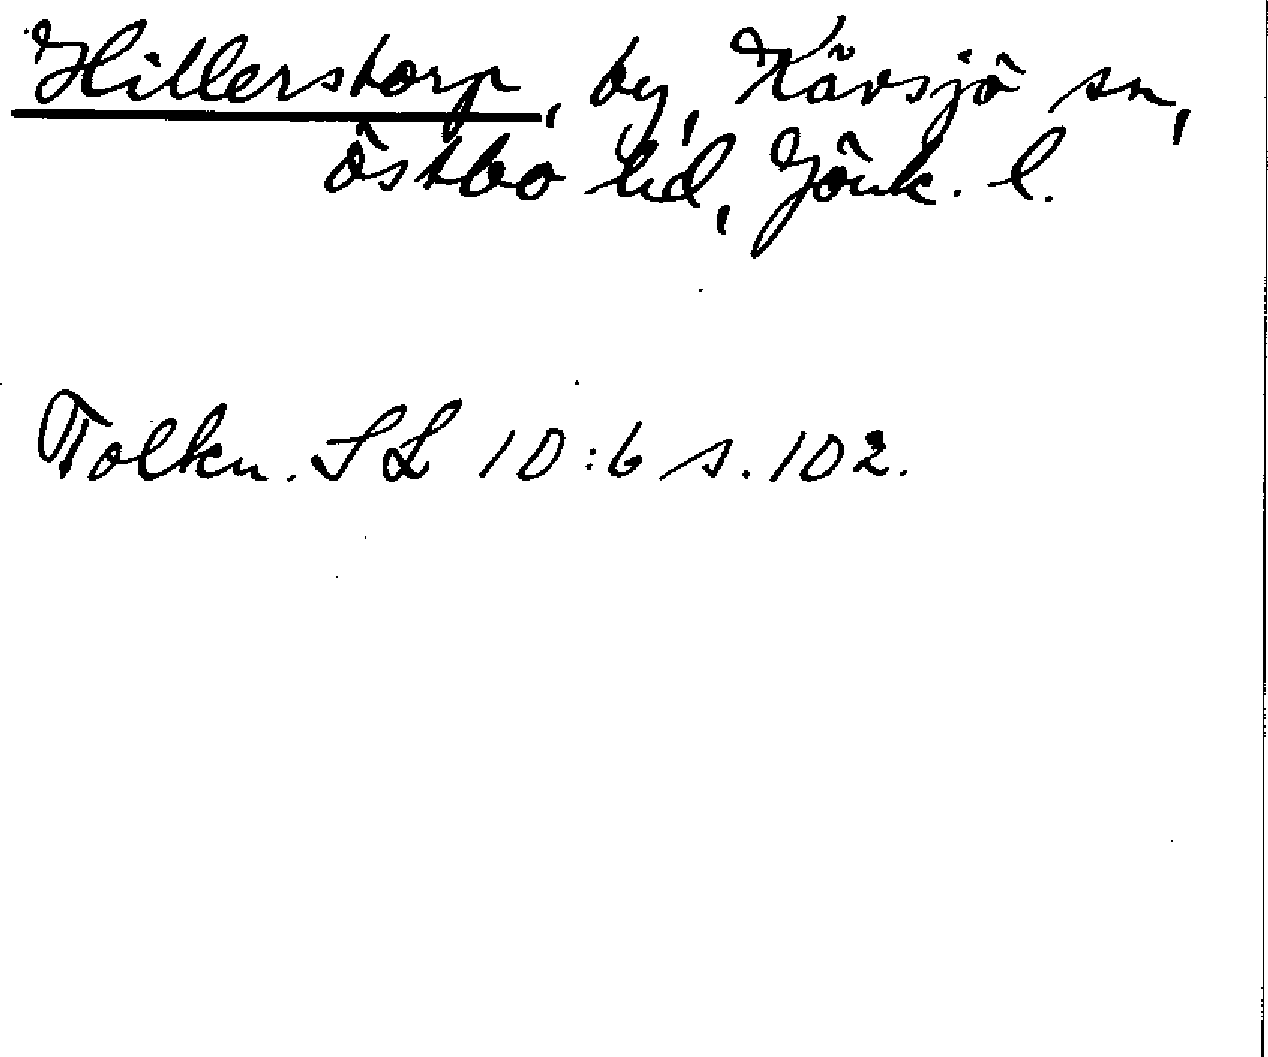 Hillerstorp, by, Kävsjö sn,
Östbo hd, Jönk. l.
Tolkn. SL 10:6 s. 102.